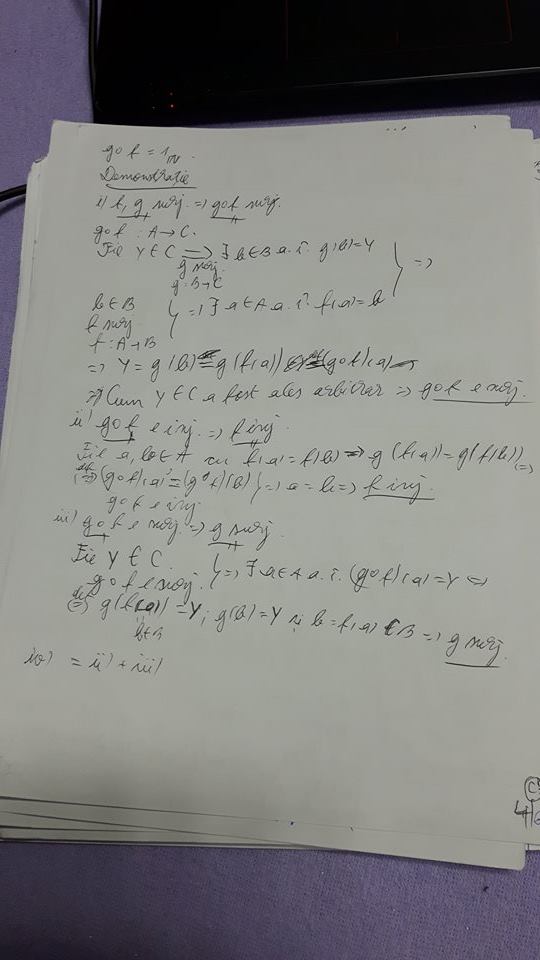 g∘f = 1_N.
Demonstratie
i) f, g surj. => g∘f surj.
g∘f : A → C.
Fie y ∈ C => ∃ b ∈ B a. î. g(b) = y
g surj.
g : B → C
} =>
b ∈ B
f surj.
f : A → B
} => ∃ a ∈ A a. î. f(a) = b
=> y = g(b) = g(f(a)) = (g∘f)(a)
=> Cum y ∈ C a fost ales arbitrar => g∘f e surj.
ii) g∘f e inj. => f inj.
Fie a, b ∈ A cu f(a) = f(b) => g(f(a)) = g(f(b)) <=>
def <=> (g∘f)(a) = (g∘f)(b) } => a = b => f inj.
g∘f e inj
iii) g∘f e surj. => g surj.
Fie y ∈ C.
g∘f e surj. } => ∃ a ∈ A a. î. (g∘f)(a) = y <=>
def <=> g(f(a)) = y; g(b) = y și b = f(a) ∈ B => g surj.
b ∈ B
iv) = ii) + iii)
C
4